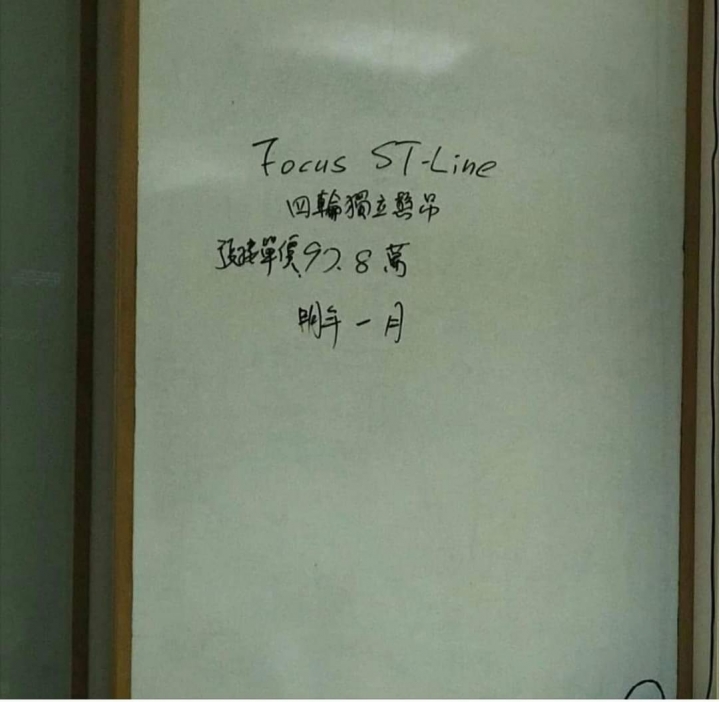 Focus ST-Line
四輪獨立懸吊
單價97.8萬
明年一月